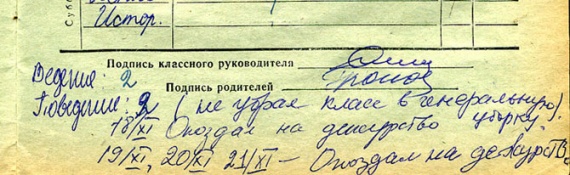 Субб
Истор.
Подпись классного руководителя
Ведение: 2
Подпись родителей
Поведение: 2 (не убрал класс в генеральную).
18/XI Опоздал на дежурство уборку.
19/XI, 20/XI 21/XI – Опоздал на дежурств